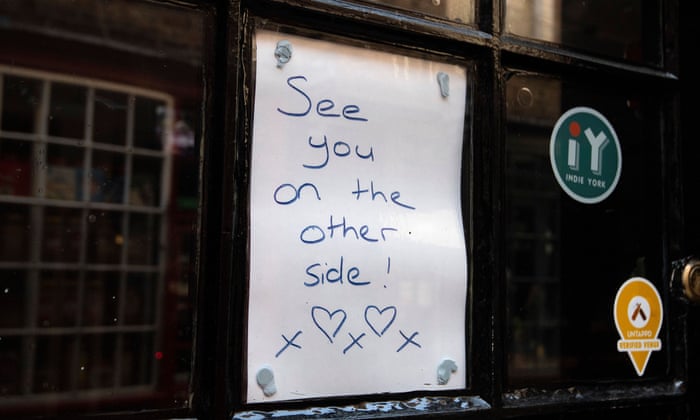 See
you
on the
other
side!
x ♡ x ♡ x
iY
INDIE YORK
UNTAPPD
VERIFIED VENUE